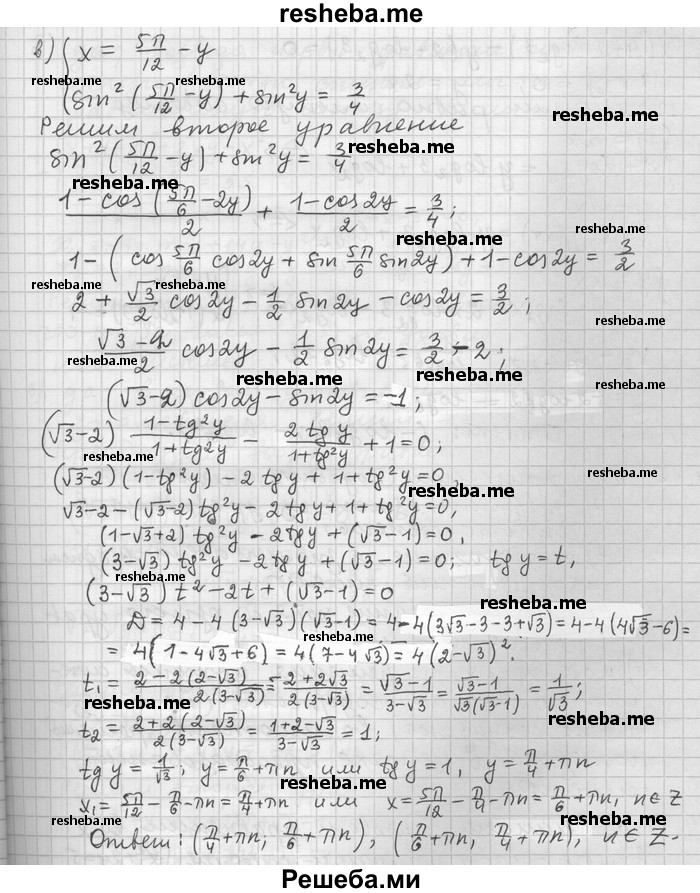 resheba.me
в) { x = 5π/12 - y
resheba.me resheba.me
{ sin²(5π/12 - y) + sin²y = 3/4 resheba.me
Решим второе уравнение
sin²(5π/12 - y) + sin²y = 3/4 resheba.me
resheba.me
(1 - cos(5π/6 - 2y))/2 + (1 - cos2y)/2 = 3/4;
resheba.me
1 - (cos 5π/6 cos2y + sin 5π/6 sin2y) + 1 - cos2y = 3/2
resheba.me resheba.me
2 + √3/2 cos2y - 1/2 sin2y - cos2y = 3/2;
resheba.me
(√3 - 2)/2 cos2y - 1/2 sin2y = 3/2 - 2;
resheba.me resheba.me
(√3-2) cos2y - sin2y = -1;
resheba.me
(√3-2) (1 - tg²y)/(1 + tg²y) - 2tgy/(1 + tg²y) + 1 = 0;
resheba.me
(√3-2)(1 - tg²y) - 2tgy + 1 + tg²y = 0,
resheba.me
√3 - 2 - (√3-2)tg²y - 2tgy + 1 + tg²y = 0,
(1 - √3 + 2) tg²y - 2tgy + (√3 - 1) = 0,
(3 - √3) tg²y - 2tgy + (√3 - 1) = 0; tgy = t,
resheba.me
(3 - √3) t² - 2t + (√3 - 1) = 0 resheba.me
D = 4 - 4(3-√3)(√3-1) = 4 - 4(3√3 - 3 - 3 + √3) = 4 - 4(4√3 - 6) =
resheba.me
= 4(1 - 4√3 + 6) = 4(7 - 4√3) = 4(2 - √3)².
resheba.me resheba.me
t₁ = (2 - 2(2-√3))/(2(3-√3)) = (-2 + 2√3)/(2(3-√3)) = (√3-1)/(3-√3) = (√3-1)/(√3(√3-1)) = 1/√3;
resheba.me
t₂ = (2 + 2(2-√3))/(2(3-√3)) = (1 + 2 - √3)/(3-√3) = 1; resheba.me
resheba.me
tgy = 1/√3; y = π/6 + πn или tgy = 1, y = π/4 + πn
resheba.me
x₁ = 5π/12 - π/6 - πn = π/4 + πn или x = 5π/12 - π/4 - πn = π/6 + πn, n∈Z
resheba.me resheba.me
Ответ: (π/4 + πn, π/6 + πn), (π/6 + πn, π/4 + πn), n∈Z.
resheba.me
Решеба.ми